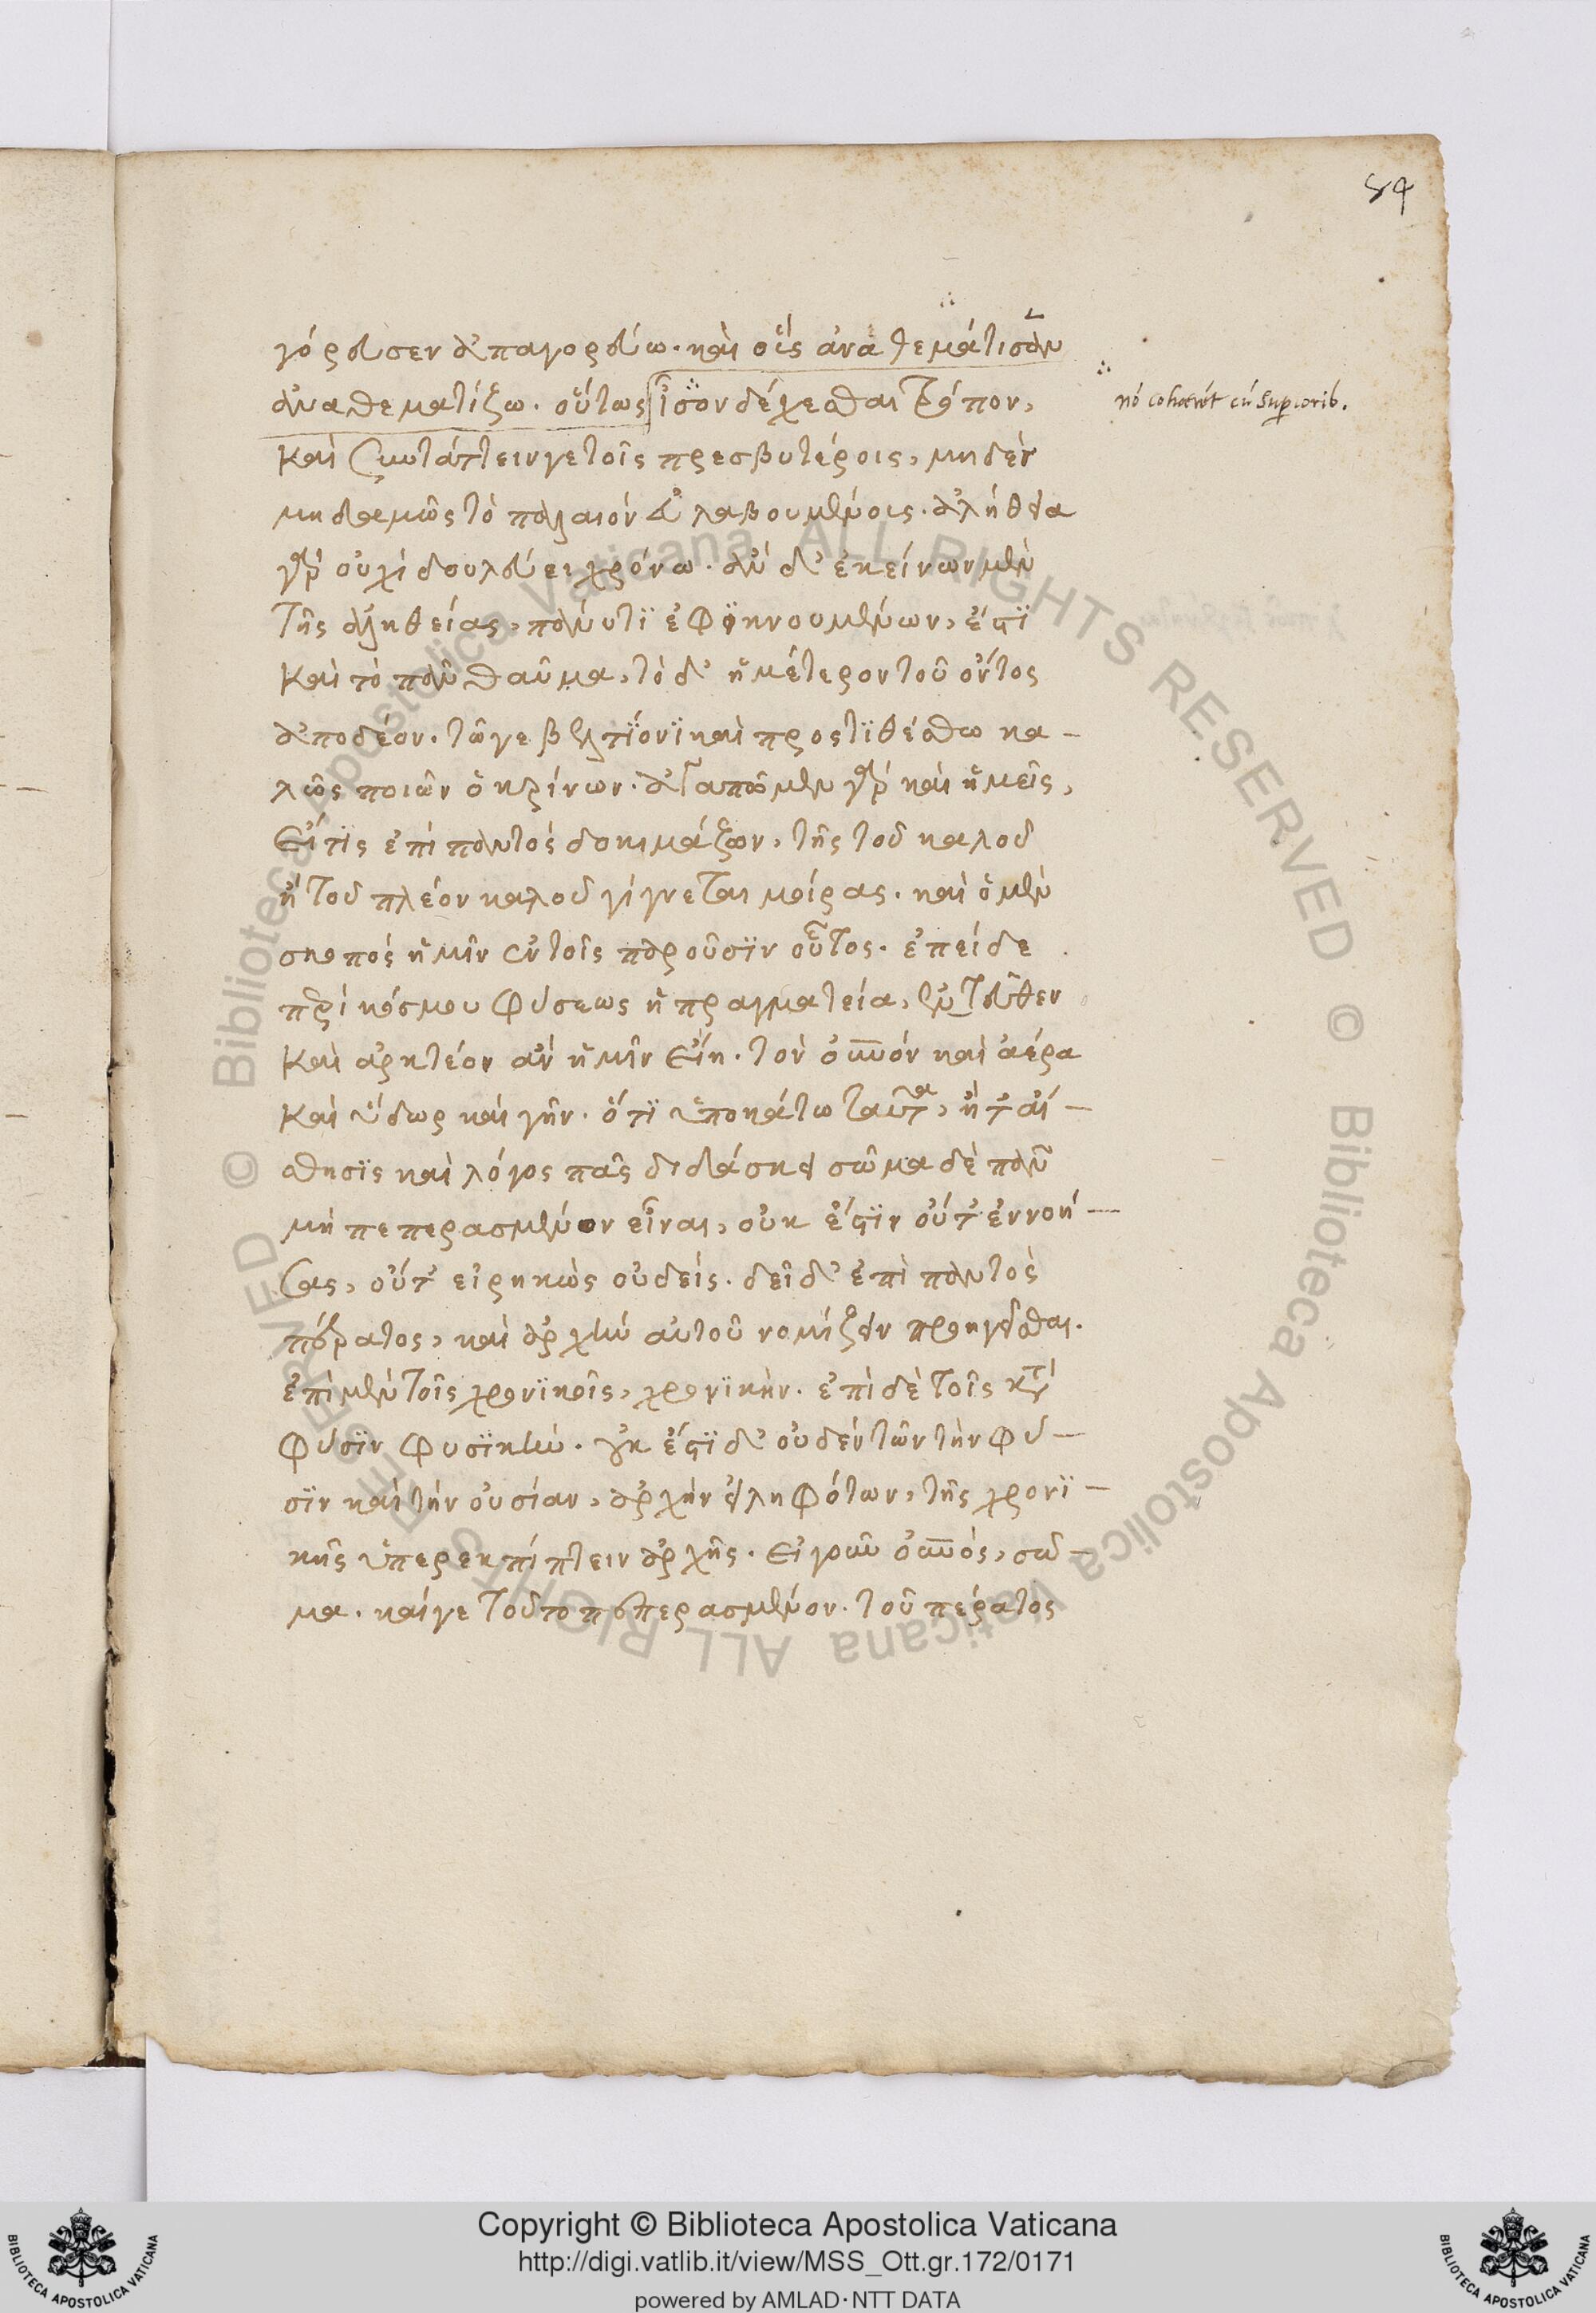 84
γόρευσεν ἀπαγορεύω. καὶ οὓς ἀναθεμάτισαν
ἀναθεματίζω. οὕτως ἴσον δέχεσθαι τρόπον,
καὶ συντάττειν γε τοῖς πρεσβυτέροις, μηδὲν
μηδαμῶς τὸ παλαιὸν εὐλαβουμένοις. ἀλήθεια
γὰρ οὐχὶ δουλεύει χρόνω. ἀν δ' ἐκείνων μὲν
τῆς ἀληθείας, παντὶ ἐφικνουμένων, ἔστι
καὶ τὸ πᾶν θαῦμα, τὸ δ' ἡμέτερον τοῦ ὄντος
ἀποδέον. τῶ γε βελτίονι καὶ προστιθέσθω κα-
λῶς ποιῶν ὁ κρίνων. ἀγαπῶμεν γὰρ καὶ ἡμεῖς,
εἴ τις ἐπὶ παντὸς δοκιμάζων, τῆς τοῦ καλοῦ
ἢ τοῦ πλέον καλοῦ γίγνεται μοίρας. καὶ ὁ μὲν
σκοπὸς ἡμῖν ἐν τοῖς παροῦσιν οὗτος. ἐπεὶ δε
περὶ κόσμου φύσεως ἡ πραγματεία, ἐντεῦθεν
καὶ ἀρκτέον ἂν ἡμῖν εἴη. τὸν οὐνὸν καὶ ἀέρα
καὶ ὕδωρ καὶ γῆν. ὅτι ὑποκάτω ταῦτα, ἥ τ' αἴ-
σθησις καὶ λόγος πᾶς διδάσκει σῶμα δὲ πᾶν
μὴ πεπερασμένον εἶναι, οὐκ ἔστιν οὔτ' ἐννοή-
σας, οὔτ' εἰρηκὼς οὐδείς. δεῖ δ' ἐπὶ παντὸς
πέρατος, καὶ ἀρχὴν αὐτοῦ νομίζειν προηγεῖσθαι.
ἐπὶ μὲν τοῖς χρονικοῖς, χρονικήν. ἐπὶ δὲ τοῖς κατὰ
φύσιν φυσικήν. οὐκ ἔστι δ' οὐδὲν τῶν τὴν φύ-
σιν καὶ τὴν οὐσίαν, ἀρχὴν εἰληφότων, τῆς χρονι-
κῆς ὑπερεκπίπτειν ἀρχῆς. εἰ γοῦν οὐνὸς, σῶ-
μα. καί γε τοῦτο πεπερασμένον. τοῦ πέρατος
nō cohaerēt cū superiorib.
Copyright © Biblioteca Apostolica Vaticana
http://digi.vatlib.it/view/MSS_Ott.gr.172/0171
powered by AMLAD·NTT DATA
© Biblioteca Apostolica Vaticana ALL RIGHTS RESERVED © Biblioteca Apostolica Vaticana ALL RIGHTS RESERVED
BIBLIOTECA APOSTOLICA VATICANA
BIBLIOTECA APOSTOLICA VATICANA